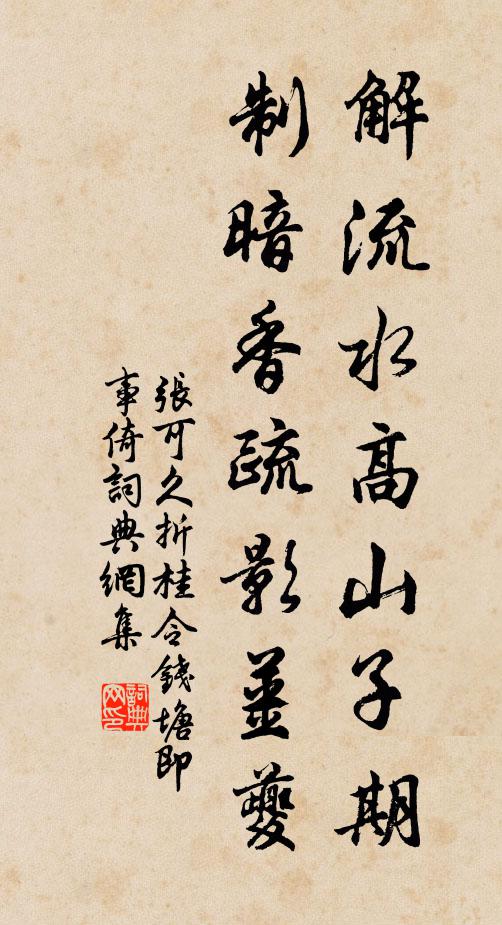 解流水高山子期
制暗香疏影姜夔
張可久折桂令錢塘即
事倚詞典網集
詞典网印